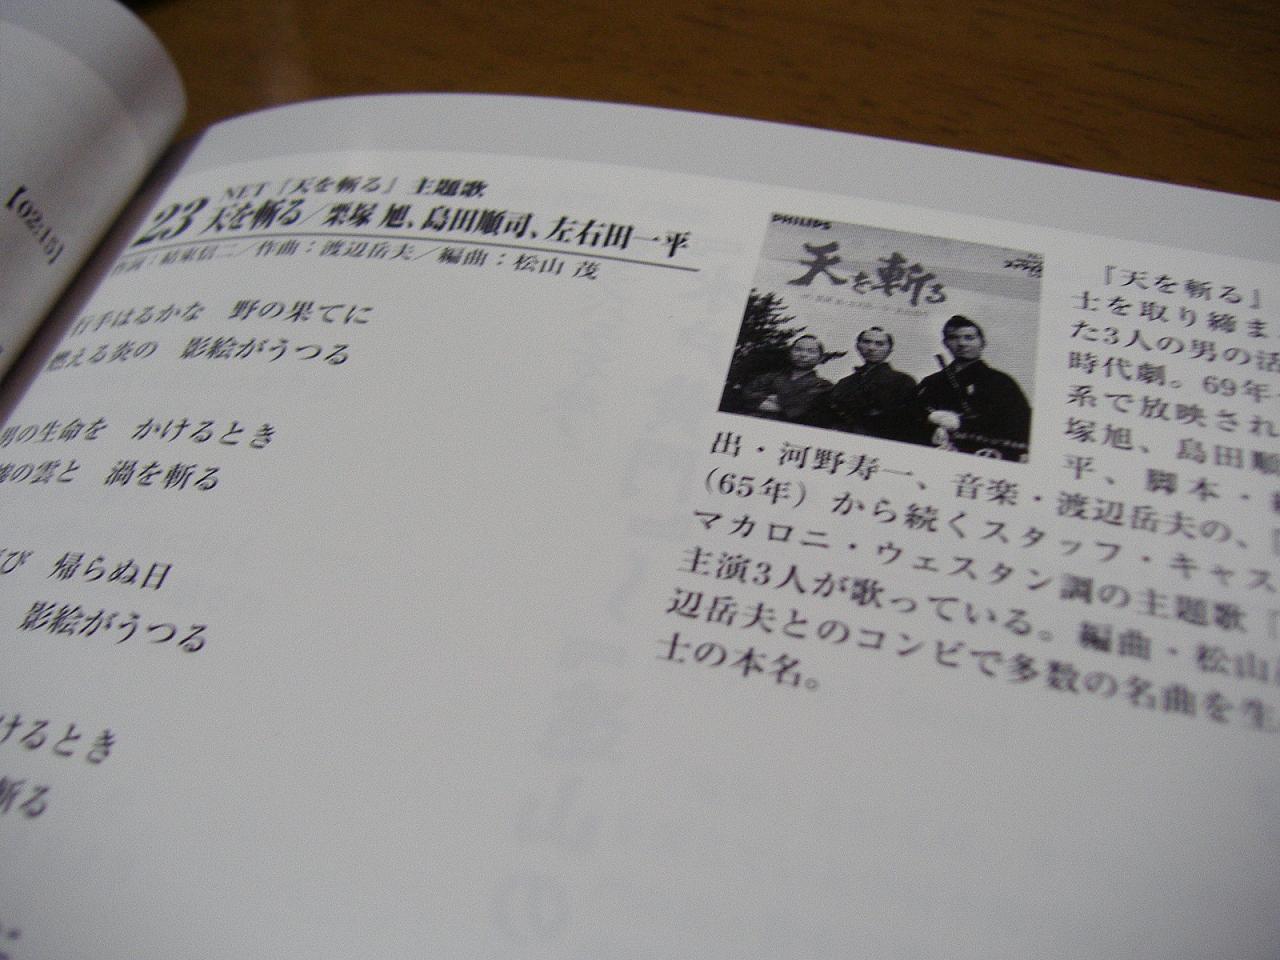 【02:15】
NET『天を斬る』主題歌
23 天を斬る／栗塚 旭、島田順司、左右田一平
作詞：結束信二／作曲：渡辺岳夫／編曲：松山 茂
行手はるかな 野の果てに
燃える炎の 影絵がうつる
男の生命を かけるとき
の雲と 渦を斬る
び 帰らぬ日
影絵がうつる
けるとき
斬る
PHILIPS
天を斬る
『天を斬る』
士を取り締ま
た3人の男の活
時代劇。69年
系で放映され
塚旭、島田順
平、脚本・
出・河野寿一、音楽・渡辺岳夫の、
（65年）から続くスタッフ・キャス
マカロニ・ウェスタン調の主題歌
主演3人が歌っている。編曲・松山
辺岳夫とのコンビで多数の名曲を生
士の本名。